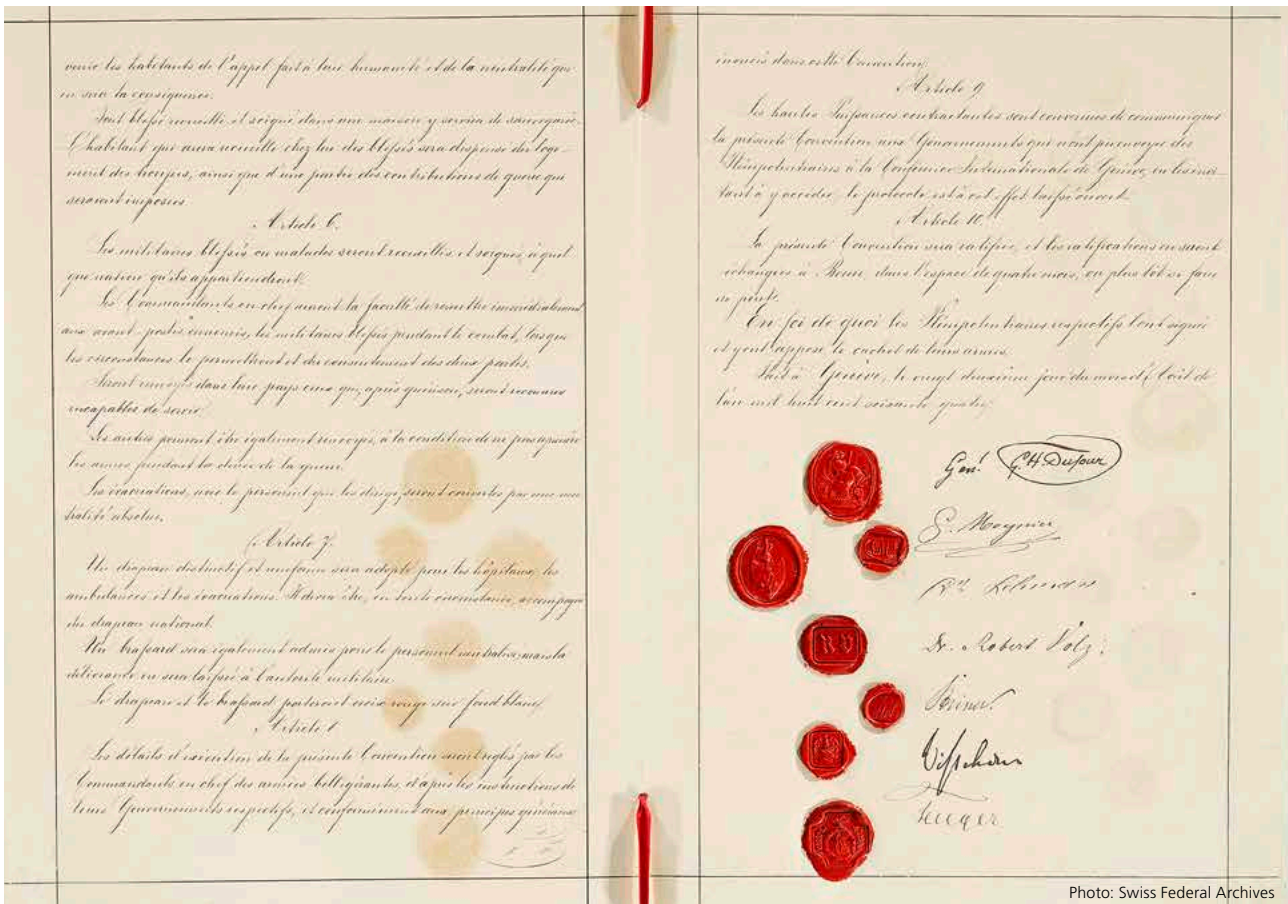 venir les habitants de l'appel fait à leur humanité et de la neutralité qui
en sera la conséquence.
Tout blessé recueilli et soigné dans une maison y servira de sauvegarde.
L'habitant qui aura recueilli chez lui des blessés sera dispensé du loge-
ment des troupes, ainsi que d'une partie des contributions de guerre qui
seraient imposées.
Article 6.
Les militaires blessés ou malades seront recueillis et soignés, à quel-
que nation qu'ils appartiendront.
Les Commandants en chef auront la faculté de remettre immédiatement
aux avant-postes ennemis, les militaires blessés pendant le combat, lorsque
les circonstances le permettront et du consentement des deux partis.
Seront renvoyés dans leur pays ceux qui, après guérison, seront reconnus
incapables de servir.
Les autres pourront être également renvoyés, à la condition de ne pas reprendre
les armes pendant la durée de la guerre.
Les évacuations, avec le personnel qui les dirige, seront couvertes par une neu-
tralité absolue.
Article 7.
Un drapeau distinctif et uniforme sera adopté pour les hôpitaux, les
ambulances et les évacuations. Il devra être, en toute circonstance, accompagné
du drapeau national.
Un brassard sera également admis pour le personnel neutralisé; mais la
délivrance en sera laissée à l'autorité militaire.
Le drapeau et le brassard porteront croix rouge sur fond blanc.
Article 8
Les détails d'exécution de la présente Convention seront réglés par les
Commandants en chef des armées belligérantes, d'après les instructions de
leurs Gouvernements respectifs, et conformément aux principes généraux
énoncés dans cette Convention.
Article 9
Les hautes Puissances contractantes sont convenues de communiquer
la présente Convention aux Gouvernements qui n'ont pu envoyer des
Plénipotentiaires à la Conférence Internationale de Genève, en les invi-
tant à y accéder; le protocole est à cet effet laissé ouvert.
Article 10.
La présente Convention sera ratifiée, et les ratifications en seront
échangées à Berne, dans l'espace de quatre mois, ou plus tôt si faire
se peut.
En foi de quoi les Plénipotentiaires respectifs l'ont signée
et y ont apposé le cachet de leurs armes.
Fait à Genève, le vingt deuxième jour du mois d'Août de
l'an mil huit cent soixante quatre.
Gén! G.H. Dufour
G. Moynier
Dr. Lehmann
Dr. Robert Volz.
RV
Steiner.
Visschers
Photo: Swiss Federal Archives